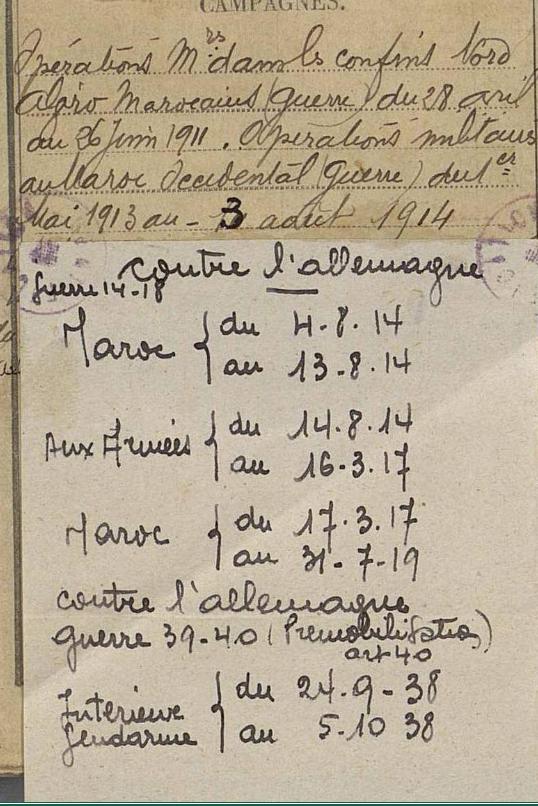 CAMPAGNES.
Opérations Mres dans ls confins Nord
Algéro Marocains (guerre) du 28 avril
au 26 Juin 1911. Opérations militaires
au Maroc Occidental (guerre) du 1er
Mai 1913 au - 3 août 1914
contre l'allemagne
Guerre 14-18
Maroc { du 4.8.14
au 13.8.14
Aux Armées { du 14.8.14
au 16.3.17
Maroc { du 17.3.17
au 31-7-19
contre l'allemagne
guerre 39-40 (Premobilisation)
art 40
Interieure { du 24.9-38
Gendarmerie au 5.10 38